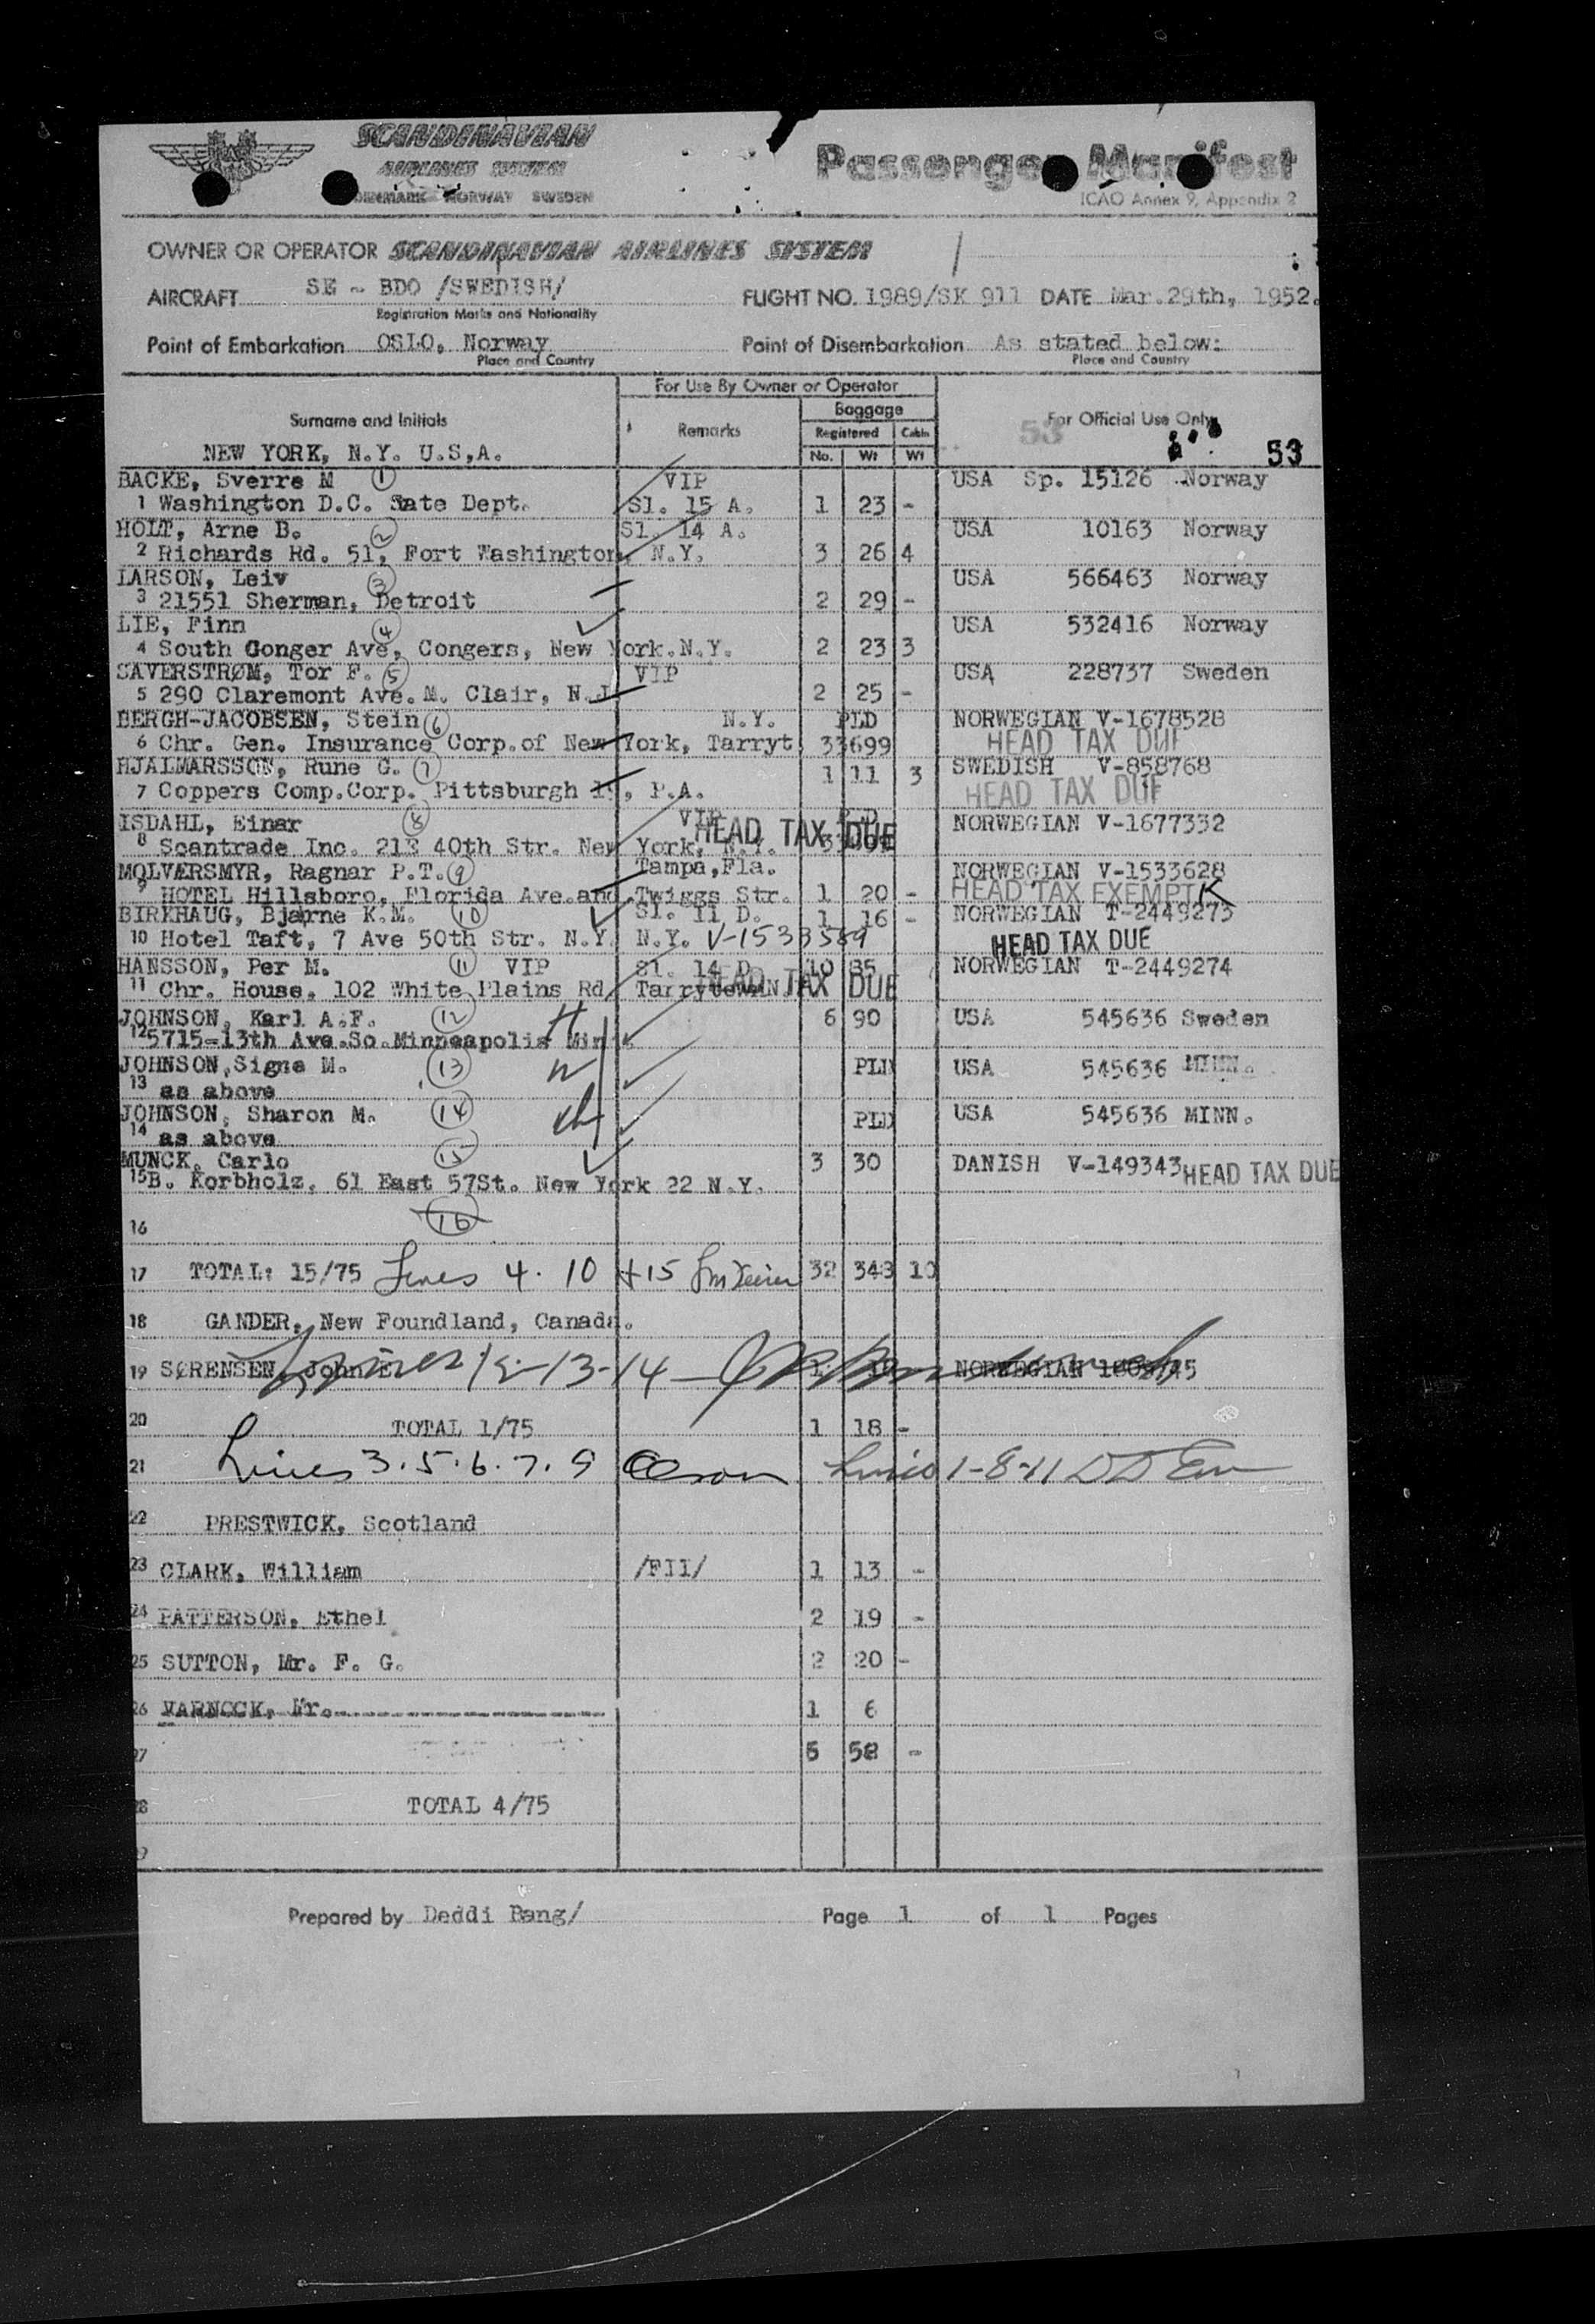 SCANDINAVIAN
AIRLINES SYSTEM
DENMARK NORWAY SWEDEN
Passenger Manifest
ICAO Annex 9, Appendix 2
OWNER OR OPERATOR SCANDINAVIAN AIRLINES SYSTEM
AIRCRAFT SE - BDO /SWEDISH/ FLIGHT NO. 1989/SK 911 DATE Mar.29th, 1952.
Registration Marks and Nationality
Point of Embarkation OSLO, Norway Point of Disembarkation As stated below:
Place and Country Place and Country
For Use By Owner or Operator
Surname and Initials Remarks Baggage For Official Use Only
Registered Cabin
53 53
NEW YORK, N.Y. U.S,A. No. Wt Wt
BACKE, Sverre M 1 VIP USA Sp. 15126 Norway
1 Washington D.C. Sate Dept. Sl. 15 A. 1 23 -
HOLT, Arne B. 2 Sl. 14 A. USA 10163 Norway
2 Richards Rd. 51, Fort Washington N.Y. 3 26 4
LARSON, Leiv 3 USA 566463 Norway
3 21551 Sherman, Detroit 2 29 -
LIE, Finn 4 USA 532416 Norway
4 South Conger Ave, Congers, New York.N.Y. 2 23 3
SAVERSTRØM, Tor F. 5 VIP USA 228737 Sweden
5 290 Claremont Ave.M. Clair, N.J 2 25 -
BERGH-JACOBSEN, Stein 6 N.Y. PLD NORWEGIAN V-1678528
HEAD TAX DUE
6 Chr. Gen. Insurance Corp.of New York, Tarryt 33699
HJALMARSSON, Rune G. 7 1 11 3 SWEDISH V-858768
7 Coppers Comp.Corp. Pittsburgh , P.A. HEAD TAX DUE
ISDAHL, Einar 8 VIP NORWEGIAN V-1677332
HEAD TAX DUE
8 Scantrade Inc. 21E 40th Str. New York, N.Y.
MOLVÆRSMYR, Ragnar P.T. 9 Tampa,Fla. NORWEGIAN V-1533628
9 HOTEL Hillsboro, Florida Ave.and Twiggs Str. 1 20 - HEAD TAX EXEMPT K
BIRKHAUG, Bjarne K.M. 10 Sl. 11 D. 1 16 - NORWEGIAN T-2449273
10 Hotel Taft, 7 Ave 50th Str. N.Y. N.Y. V-1533589 HEAD TAX DUE
HANSSON, Per M. 11 VIP Sl. 14 D 10 35 NORWEGIAN T-2449274
HEAD TAX DUE
11 Chr. House. 102 White Plains Rd Tarrytown
JOHNSON, Karl A.F. 12 H 6 90 USA 545636 Sweden
12 5715-13th Ave.So.Minneapolis Min
JOHNSON,Signe M. 13 W PLD USA 545636 MINN.
13 as above
JOHNSON, Sharon M. 14 ch PLD USA 545636 MINN.
14 as above
MUNCK, Carlo 15 3 30 DANISH V-149343 HEAD TAX DUE
15 B. Korbholz, 61 East 57St. New York 22 N.Y.
16 16
17 TOTAL: 15/75 Lines 4. 10 +15 32 348 10
18 GANDER, New Foundland, Canada.
19 SØRENSEN, John E. Lines 12-13-14 1 NORWEGIAN
20 TOTAL 1/75 1 18 -
21 Lines 3.5.6.7.9 Lines 1-8-11
22 PRESTWICK, Scotland
23 CLARK, William /FII/ 1 13 -
24 PATTERSON, Ethel 2 19 -
25 SUTTON, Mr. F. G. 2 20 -
26 VARNOCK, Mr. 1 6
27 5 58 -
28 TOTAL 4/75
Prepared by Deddi Bang/ Page 1 of 1 Pages